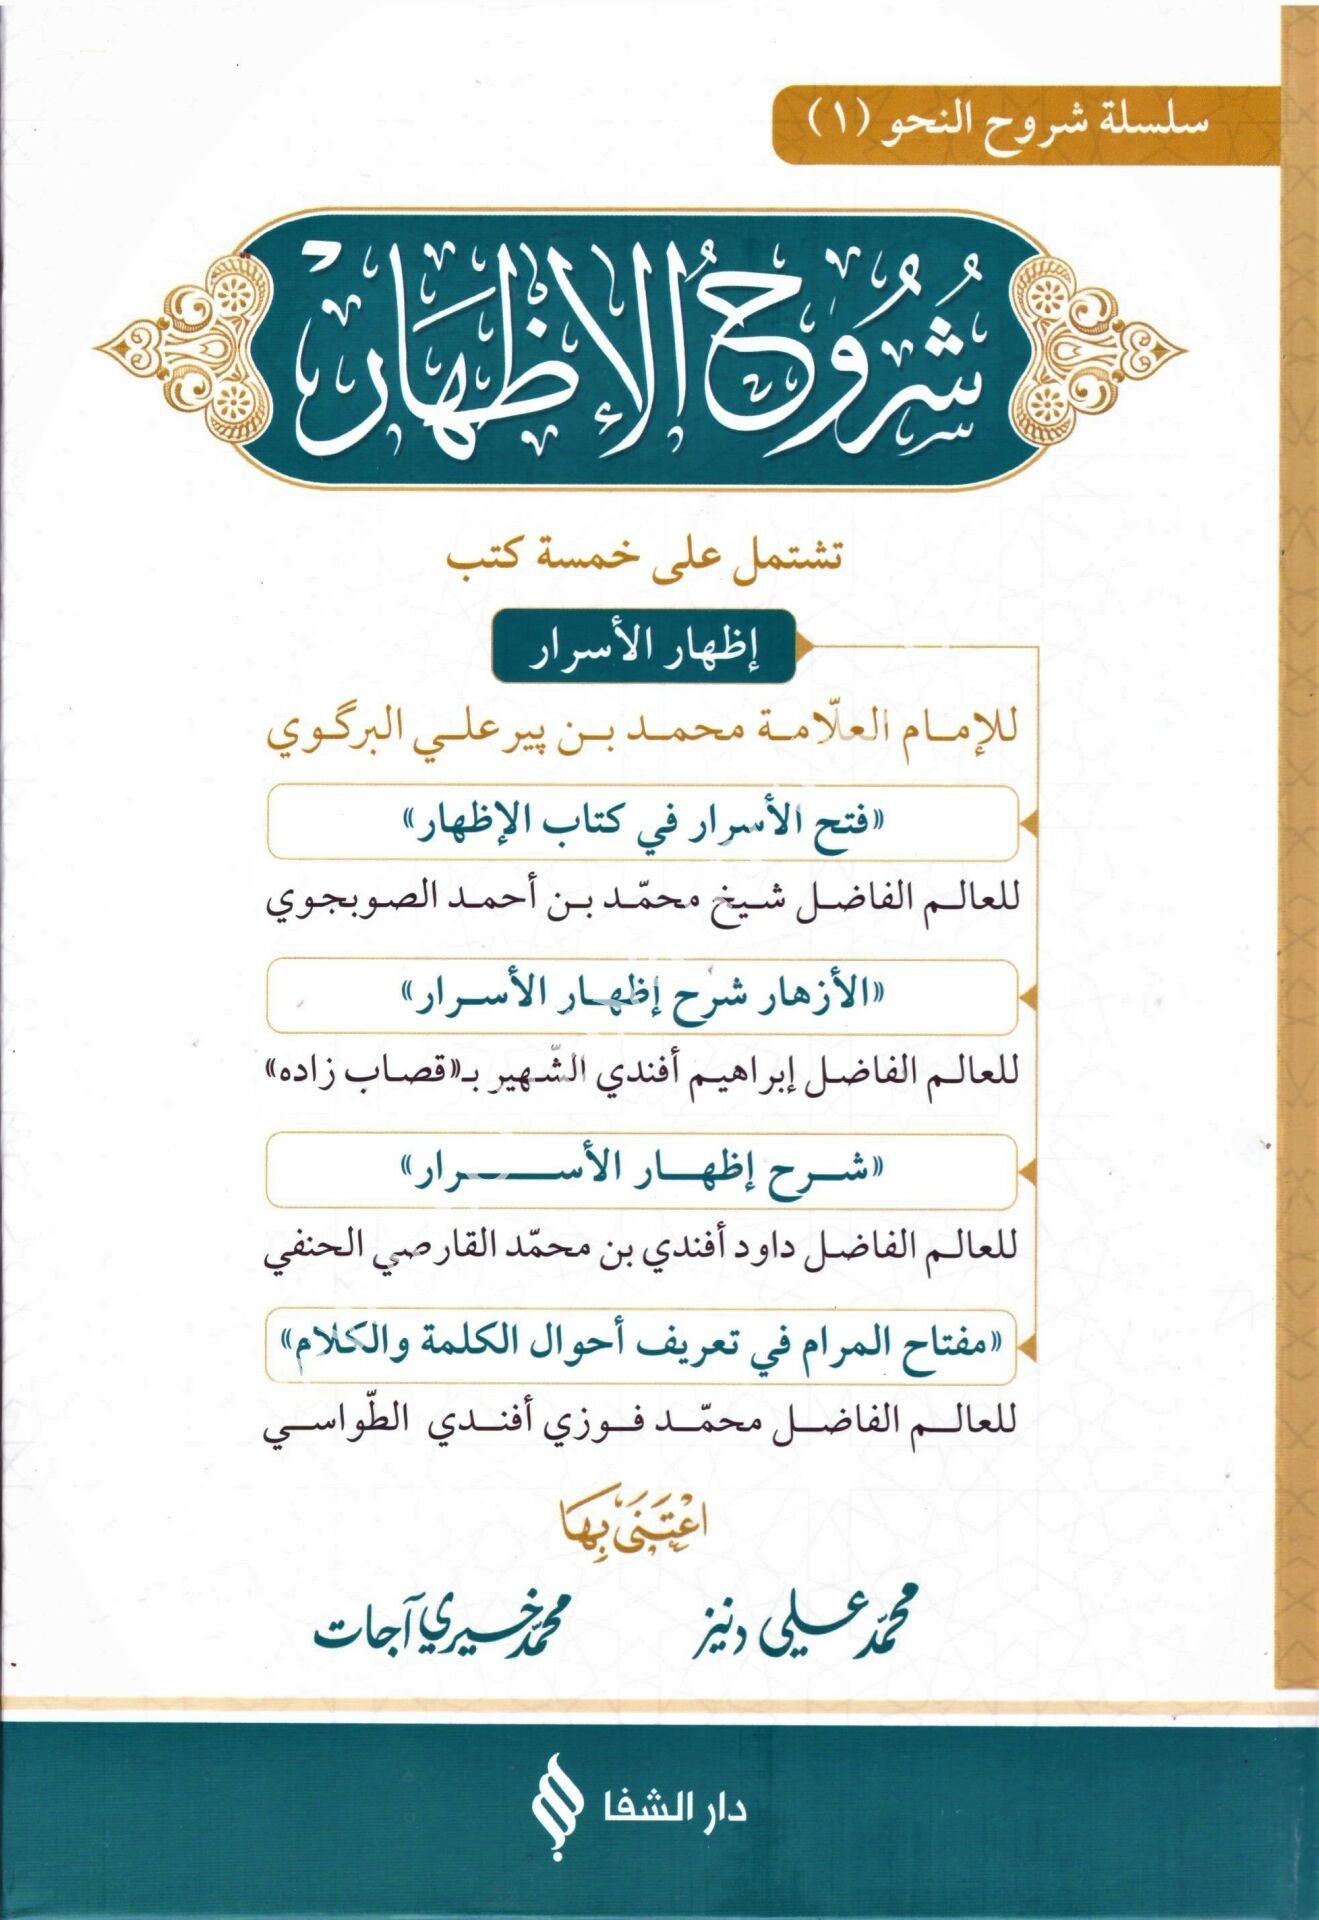 سلسلة شروح النحو (١)
شُرُوحُ الإِظهَار
تشتمل على خمسة كتب
إظهار الأسرار
للإمام العلّامة محمد بن پير علي البرگوي
«فتح الأسرار في كتاب الإظهار»
للعالم الفاضل شيخ محمّد بن أحمد الصوبجوي
«الأزهار شرح إظهار الأسرار»
للعالم الفاضل إبراهيم أفندي الشّهير بـ«قصاب زاده»
«شرح إظهار الأسرار»
للعالم الفاضل داود أفندي بن محمّد القارصي الحنفي
«مفتاح المرام في تعريف أحوال الكلمة والكلام»
للعالم الفاضل محمّد فوزي أفندي الطّواسي
اعْتَنَى بِهَا
محمّد علي دنيز
محمّد خيري آجات
دار الشفا